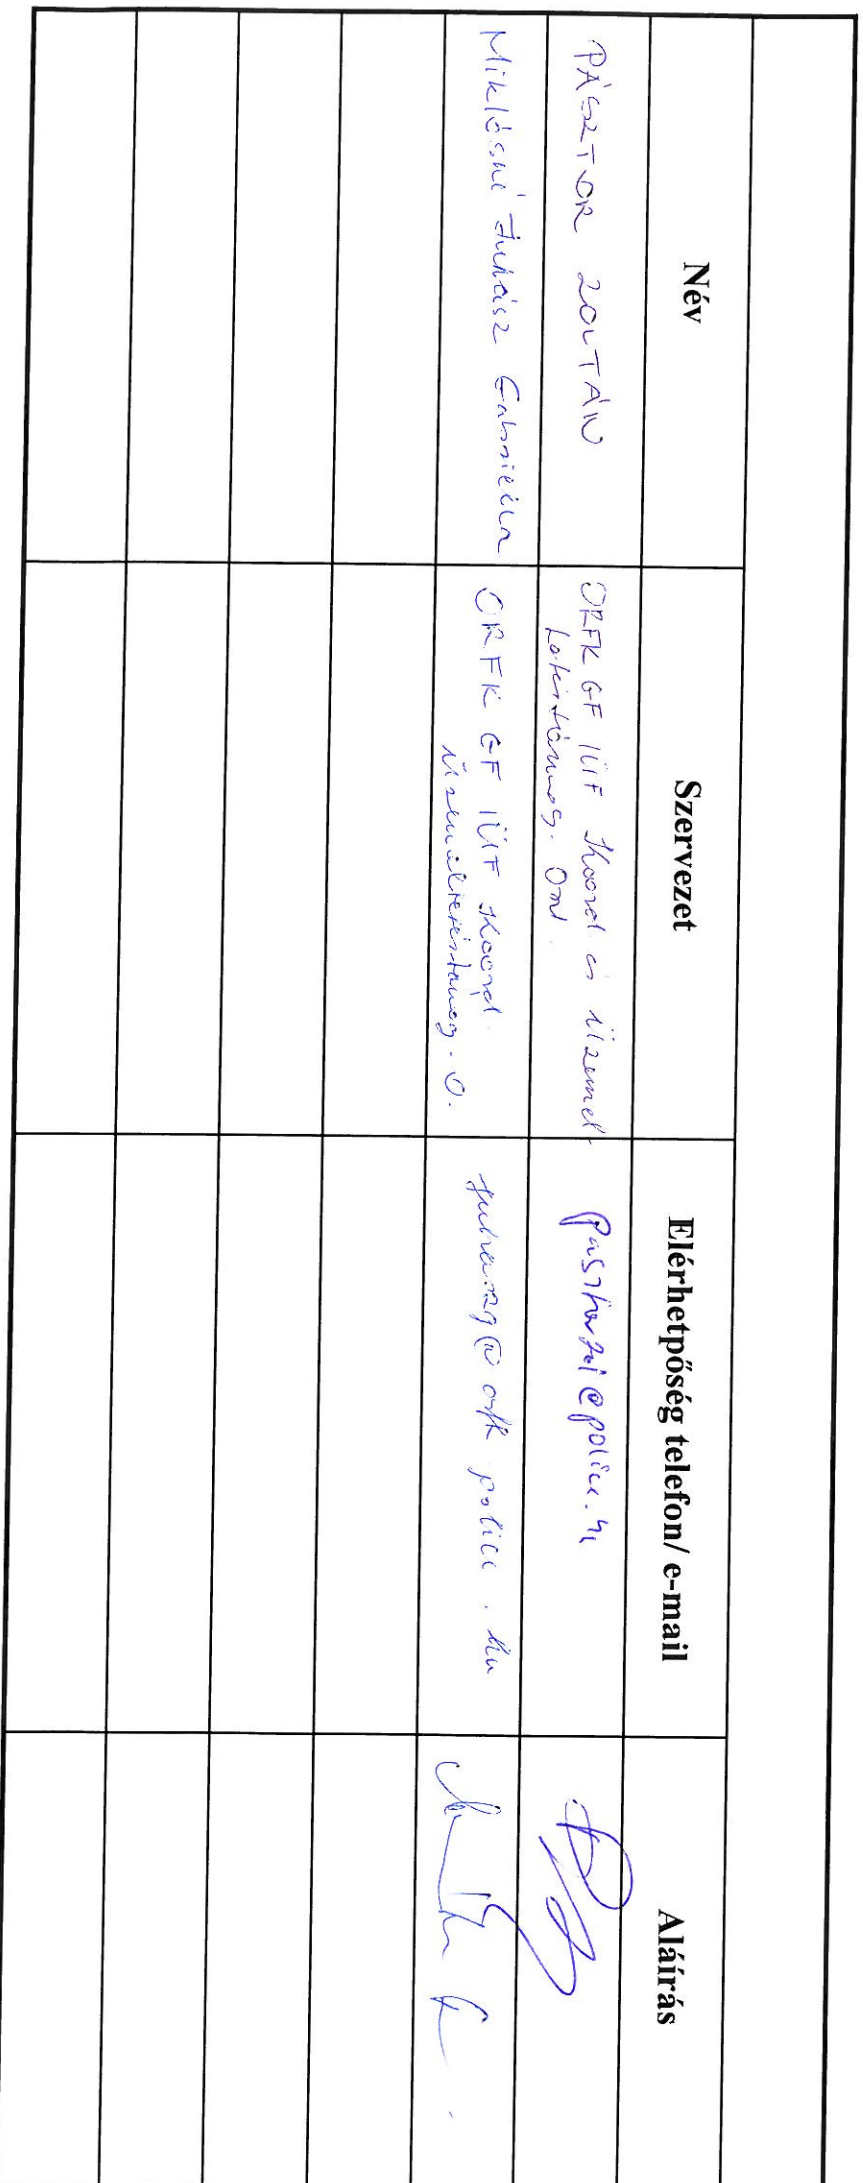 Név Szervezet Elérhetpőség telefon/ e-mail Aláírás
PÁSZTOR ZOLTÁN ORFK GF IÜIF Koord és üzemel-
Ord.
pasztorzol@police.hu
Miklósné Juhász Gabriella ORFK GF IÜIF Koord.
O.
juhaszg@orfk.police.hu